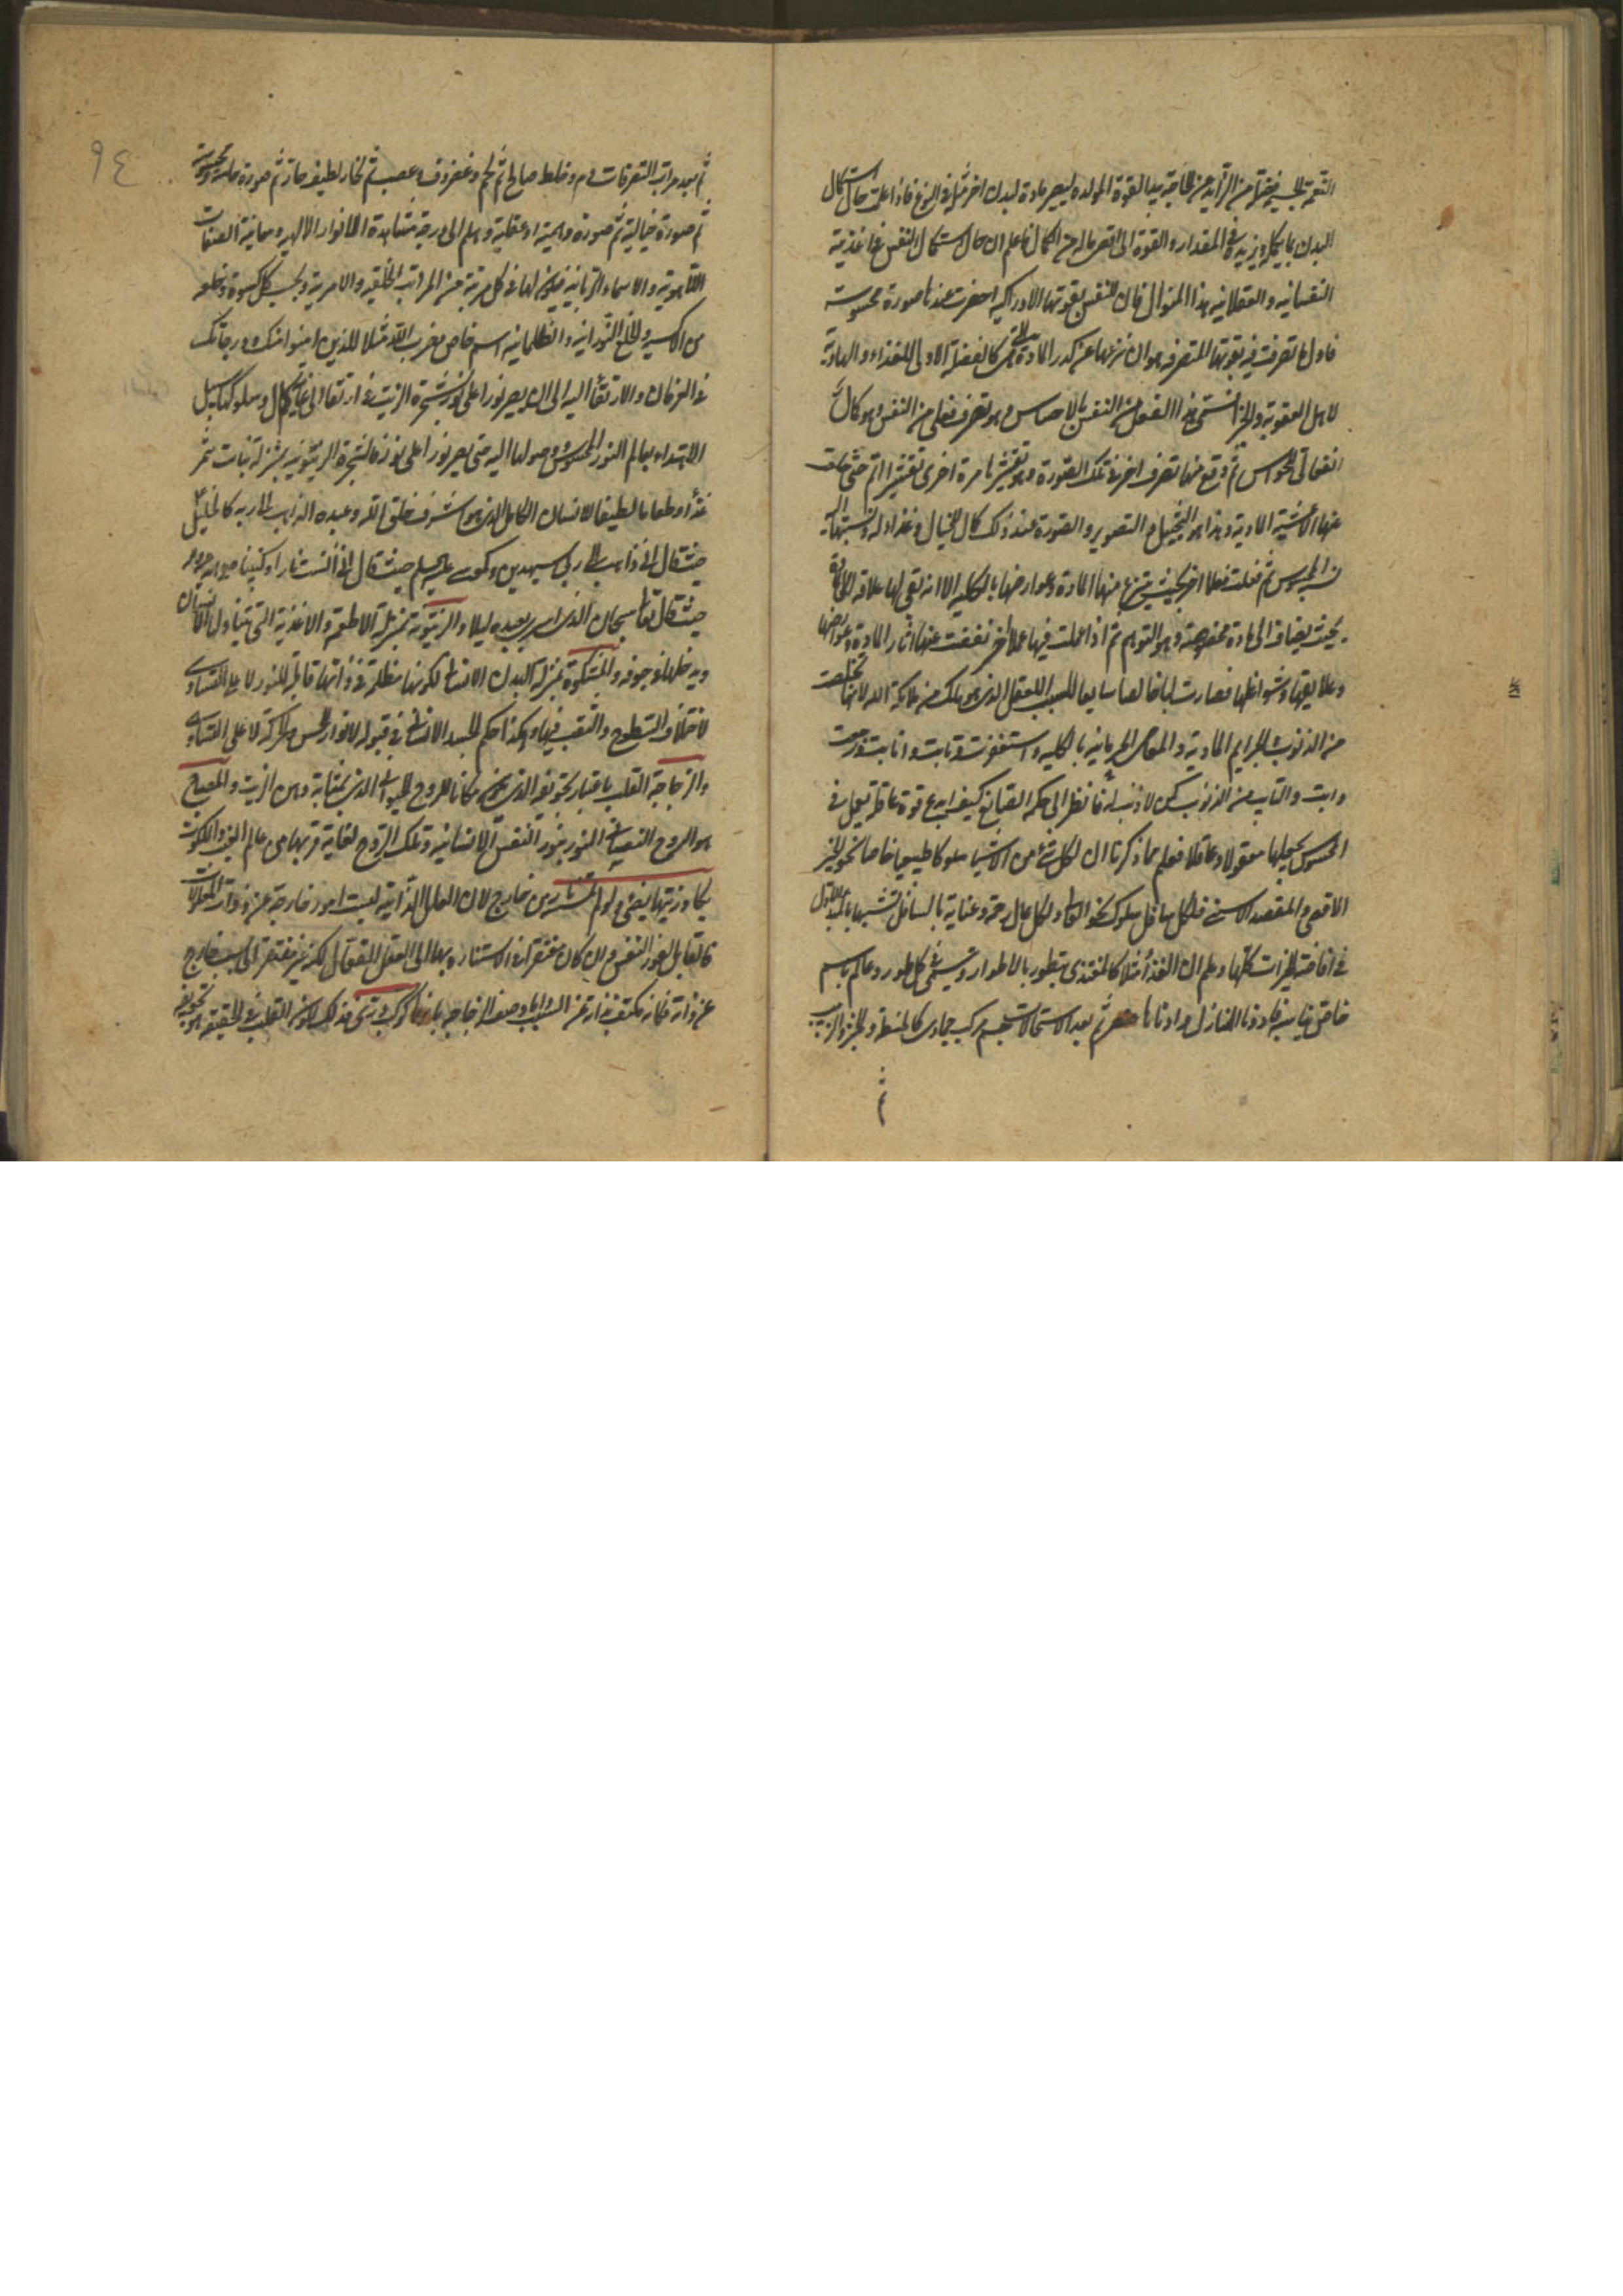 البدن بما يكمله ويزيده في المقدار والقوة الى اقصى ماله من الكمال فاعلم ان حال استكمال النفس في اغذية
النفسانيه والعقلانيه هذا المنوال فان النفس بقوتها الادراكيه احضرت عندنا صورة محسوسة
فاول ما تصرفت فيه بقوتها المتصرفه هو ان نزعتها عن كدر المادة كالفضلة الاولى للغذاء والهادية
لاهل العقوبة والجزا فسمي هذا الفعل من النفس بالاحساس وهو تصرف فعلي من النفس وهو كان
انفعالي للحواس ثم وقع منها تصرف اخر في تلك الصورة وهو تقشيرنا مرة اخرى تقشيرا اتم حتى
عنها الاغشية المادية وهذا هو التخيل والتصوير والصورة عند ذلك كان للخيال وغذا له ونسبتها
ثم فعلت فعلا اخر بحيث ينزع عنها المادة وعوارضها بالكليه الا انه بقي لها علاقة
بحيث يضاف الى مادة مخصوصة وهو التوهم ثم اذا عملت فيها عملا اخر نفضت عنها اثار المادة وعوارضها
وعلايقها وشواغلها فصارت لبابا خالصا سايغا للعقل الذي هو ملك من ملائكة الله لانها تخلصت
من الذنوب والجرايم المادية والمعاصي الجرمانيه بالكليه واستغفرت وتابت وانابت ورجعت
والتايب من الذنوب كمن لا ذنب له فانظر الى حكمة الصانع كيف ابدع قوة عاقلة تعمل في
المحسوس يجعلها معقولا وعاقلا فعلم مما ذكرنا ان لكل شئ من الاشيا سلوكا طبيعيا خاصا نحو الخير
الاقصى والمقصد الاسنى فلكل سافل سلوك نحو العالي ولكل عال رحمة وعناية بالسافل تشبها بالمبدا الاول
في افاضة الخيرات كلها وعلم ان الغذا مثلا كالمغتذى يتطور بالاطوار ويسمى في كل طور وعالم باسم
خاص ثم بعد الاستحالات جسم مركب جمادي كالحنطة والخبز والزبيب
ثم
٩٤
ثم بعد مراتب التصرفات دم وخلط صالح ثم لحم وغضروف وعصب ثم بخار لطيف حار ثم صورة حاسة ومحسوسة
ثم صورة خيالية ثم صورة وهمية او عقلية وهلم الى درجة مشاهدة الانوار الالهيه ومعاينة الصفات
اللاهوتيه والاسماء الربانيه فيكون لها في كل مرتبة من المراتب الخلقيه والامريه وبحسب كل كسوة وخلعه
من الاكسية والخلع النورانيه والظلمانيه اسم خاص فضرب الله مثلا للذين امنوا منك ودرجاتك
في العرفان والارتقا اليه الى ان يصير نورا على نور شجرة الزيت في ارتقا الى غاية كمال وسلوكها سبيل
الاهتداء بعالم النور المحسوس ووصولها اليه حتى يصير نورا على نور فالشجرة الزيتونيه بمنزلة نبات تثمر
غذا وطعاما لطيفا للانسان الكامل الذي هو اشرف خلق الله وعبده الذاهب الى ربه كالخليل
حيث قال اني ذاهب الى ربي سيهدين وكموسى عليه السلم حيث قال اني انست نارا وكنبينا
حيث قال تعالى سبحان الذي اسرى بعبده ليلا والزيتونه بمنزلة الاطعمه والاغذية التي يتناول الانسان
ويدخلها في جوفه والمشكوة بمنزلة البدن الانساني لكونها مظلمة في ذاتها قابلة للنور لا على التساوي
لاختلاف السطوح والثقب فيها وهكذا حكم الجسد الانساني في قبوله لانوار الحس والحركة لا على التساوي
والزجاجة القلب باعتبار تجويفه الذي يكون مكانا للروح الحيواني الذي بمثابة دهن الزيت والمصباح
هو الروح النفساني المنور بنور النفس الانسانيه وتلك الروح لغاية قربها من عالم الغيب والملكوت
يكاد زيتها يضئ ولو لم تمسسه نار من خارج لان العلل الذاتيه ليست امور خارجة عن ذوات المعلولات
فالقابل لنور النفس وان كان مفتقرا في الاستناره بها الى العقل الفعال لكن غير مفتقر الى سبب خارج
عن ذاته فكانه مكتف بذاته عن السبب واما وصف الزجاجه بانها كوكب دري فذلك لكون القلب في الحقيقه هو